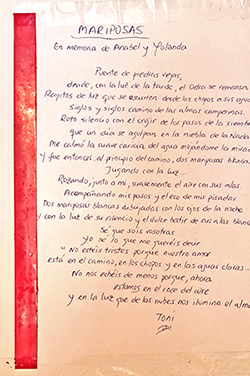 MARIPOSAS
En memoria de Anabel y Yolanda
Puente de piedras viejas,
donde, con la luz de la tarde, el Odra se remansa
Rayitos de luz que se escurren desde los chopos a sus aguas
Siglos y siglos camino de las almas campesinas.
Roto silencio con el crujir de los pasos de la siembra
que un día se agolpan en la niebla de la Nada
Me calmó la suave caricia del agua mojándome la mirada
y fue entonces, al principio del camino, dos mariposas blancas
Jugando con la luz...
Rozando, junto a mí, suavemente el aire con sus alas.
Acompañando mis pasos y el eco de mis pisadas
Dos mariposas blancas dibujadas con los ojos de la noche
y con la luz de su silencio y el dulce batir de sus alas blancas
Sé que sois vosotras
Yo sé lo que me queréis decir
"No estéis tristes porque nuestro amor
está en el camino, en los chopos y en las aguas claras...
No nos echéis de menos porque, ahora
estamos en el roce del aire
y en la luz que de las nubes nos ilumina el alma
Toni